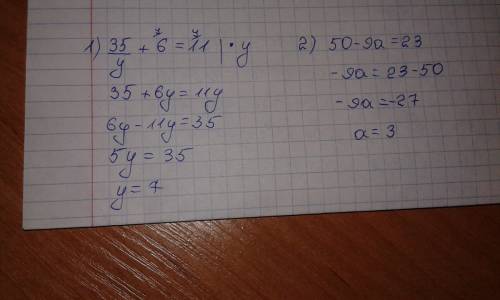 1) 35/y + 6 = 11 | · y
35 + 6y = 11y
6y - 11y = 35
5y = 35
y = 7
2) 50 - 9a = 23
- 9a = 23 - 50
- 9a = -27
a = 3